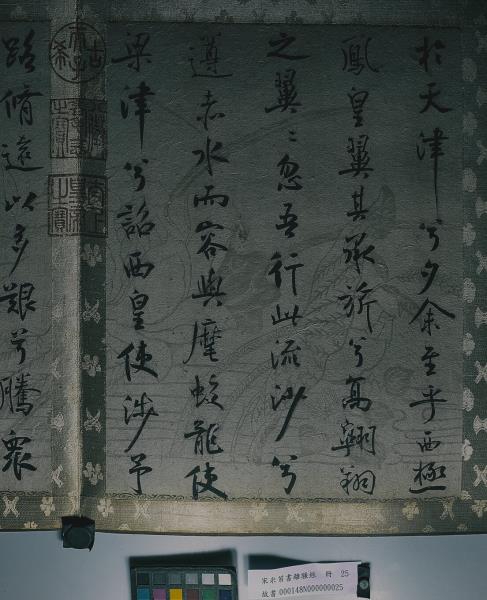 於天津兮夕余至乎西極
鳳皇翼其承旂兮高翺翔
之翼〻忽吾行此流沙兮
遵赤水而容與麾蛟龍使
梁津兮詔西皇使涉予
路脩遠以多艱兮騰衆
古希天子
宋米芾書離騷經 冊 25
故書000148N000000025